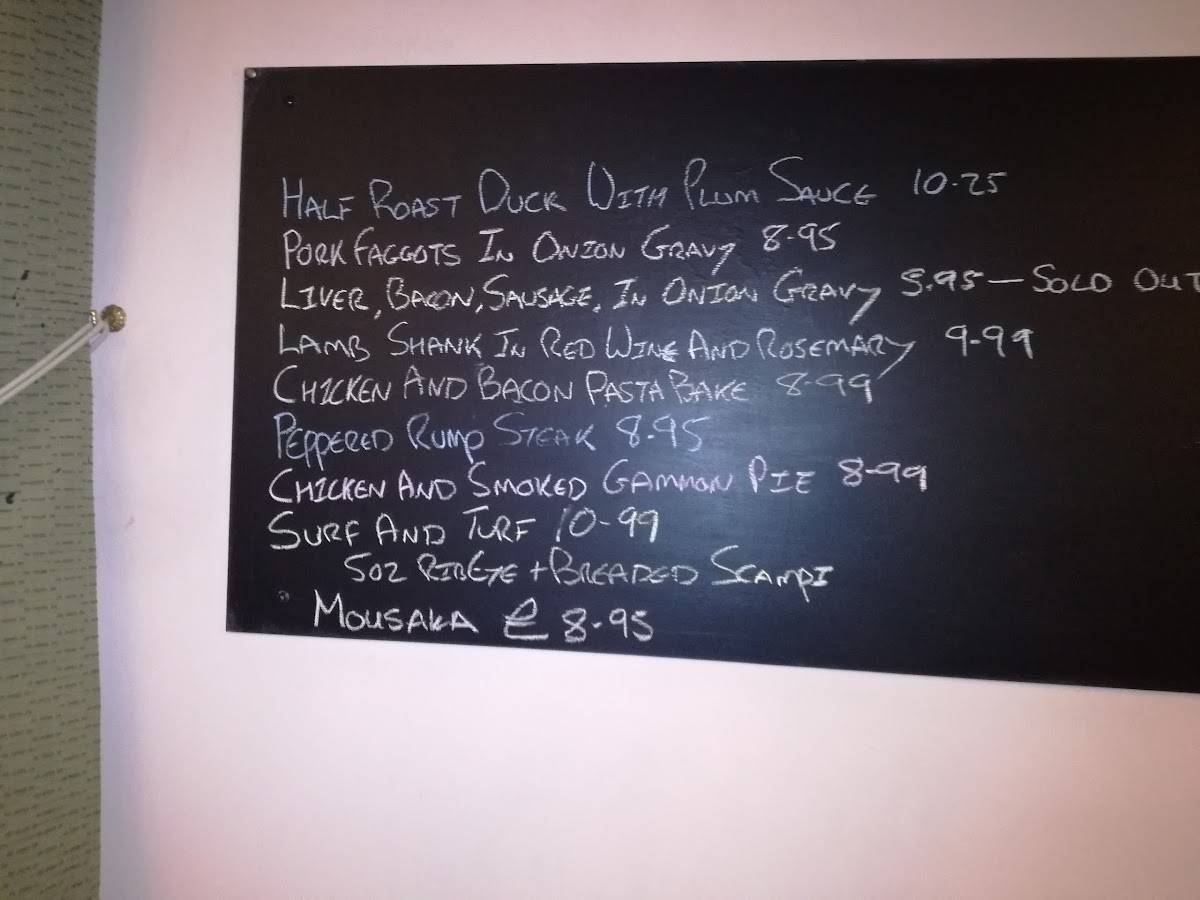 HALF ROAST DUCK WITH PLUM SAUCE 10-25
PORK FAGGOTS IN ONION GRAVY 8-95
LIVER, BACON, SAUSAGE, IN ONION GRAVY 8.95 — SOLD OUT
LAMB SHANK IN RED WINE AND ROSEMARY 9-99
CHICKEN AND BACON PASTA BAKE 8-99
PEPPERED RUMP STEAK 8.95
CHICKEN AND SMOKED GAMMON PIE 8-99
SURF AND TURF 10-99
5OZ RIBEYE + BREADED SCAMPI
MOUSAKA £ 8-95